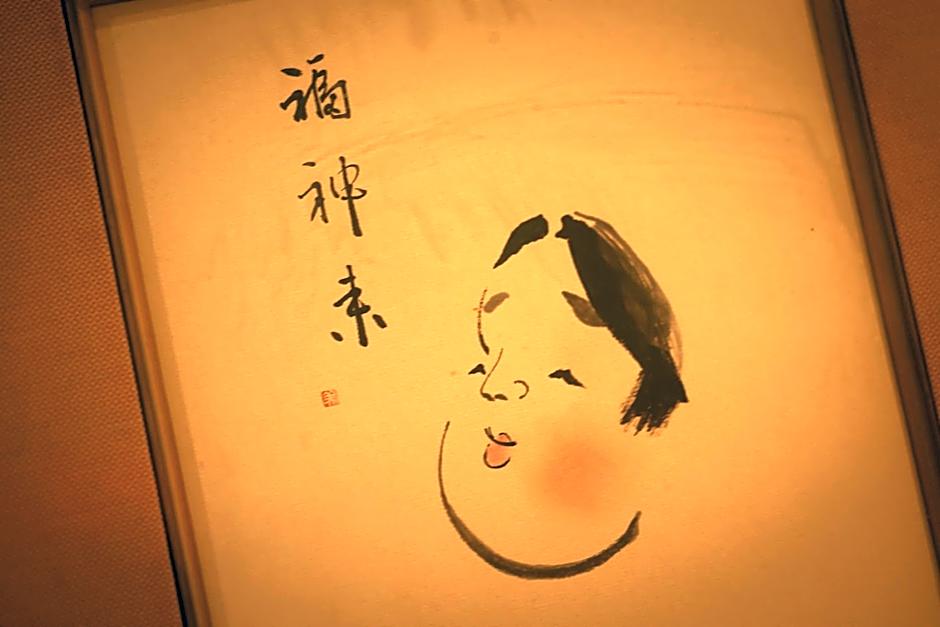 福神来